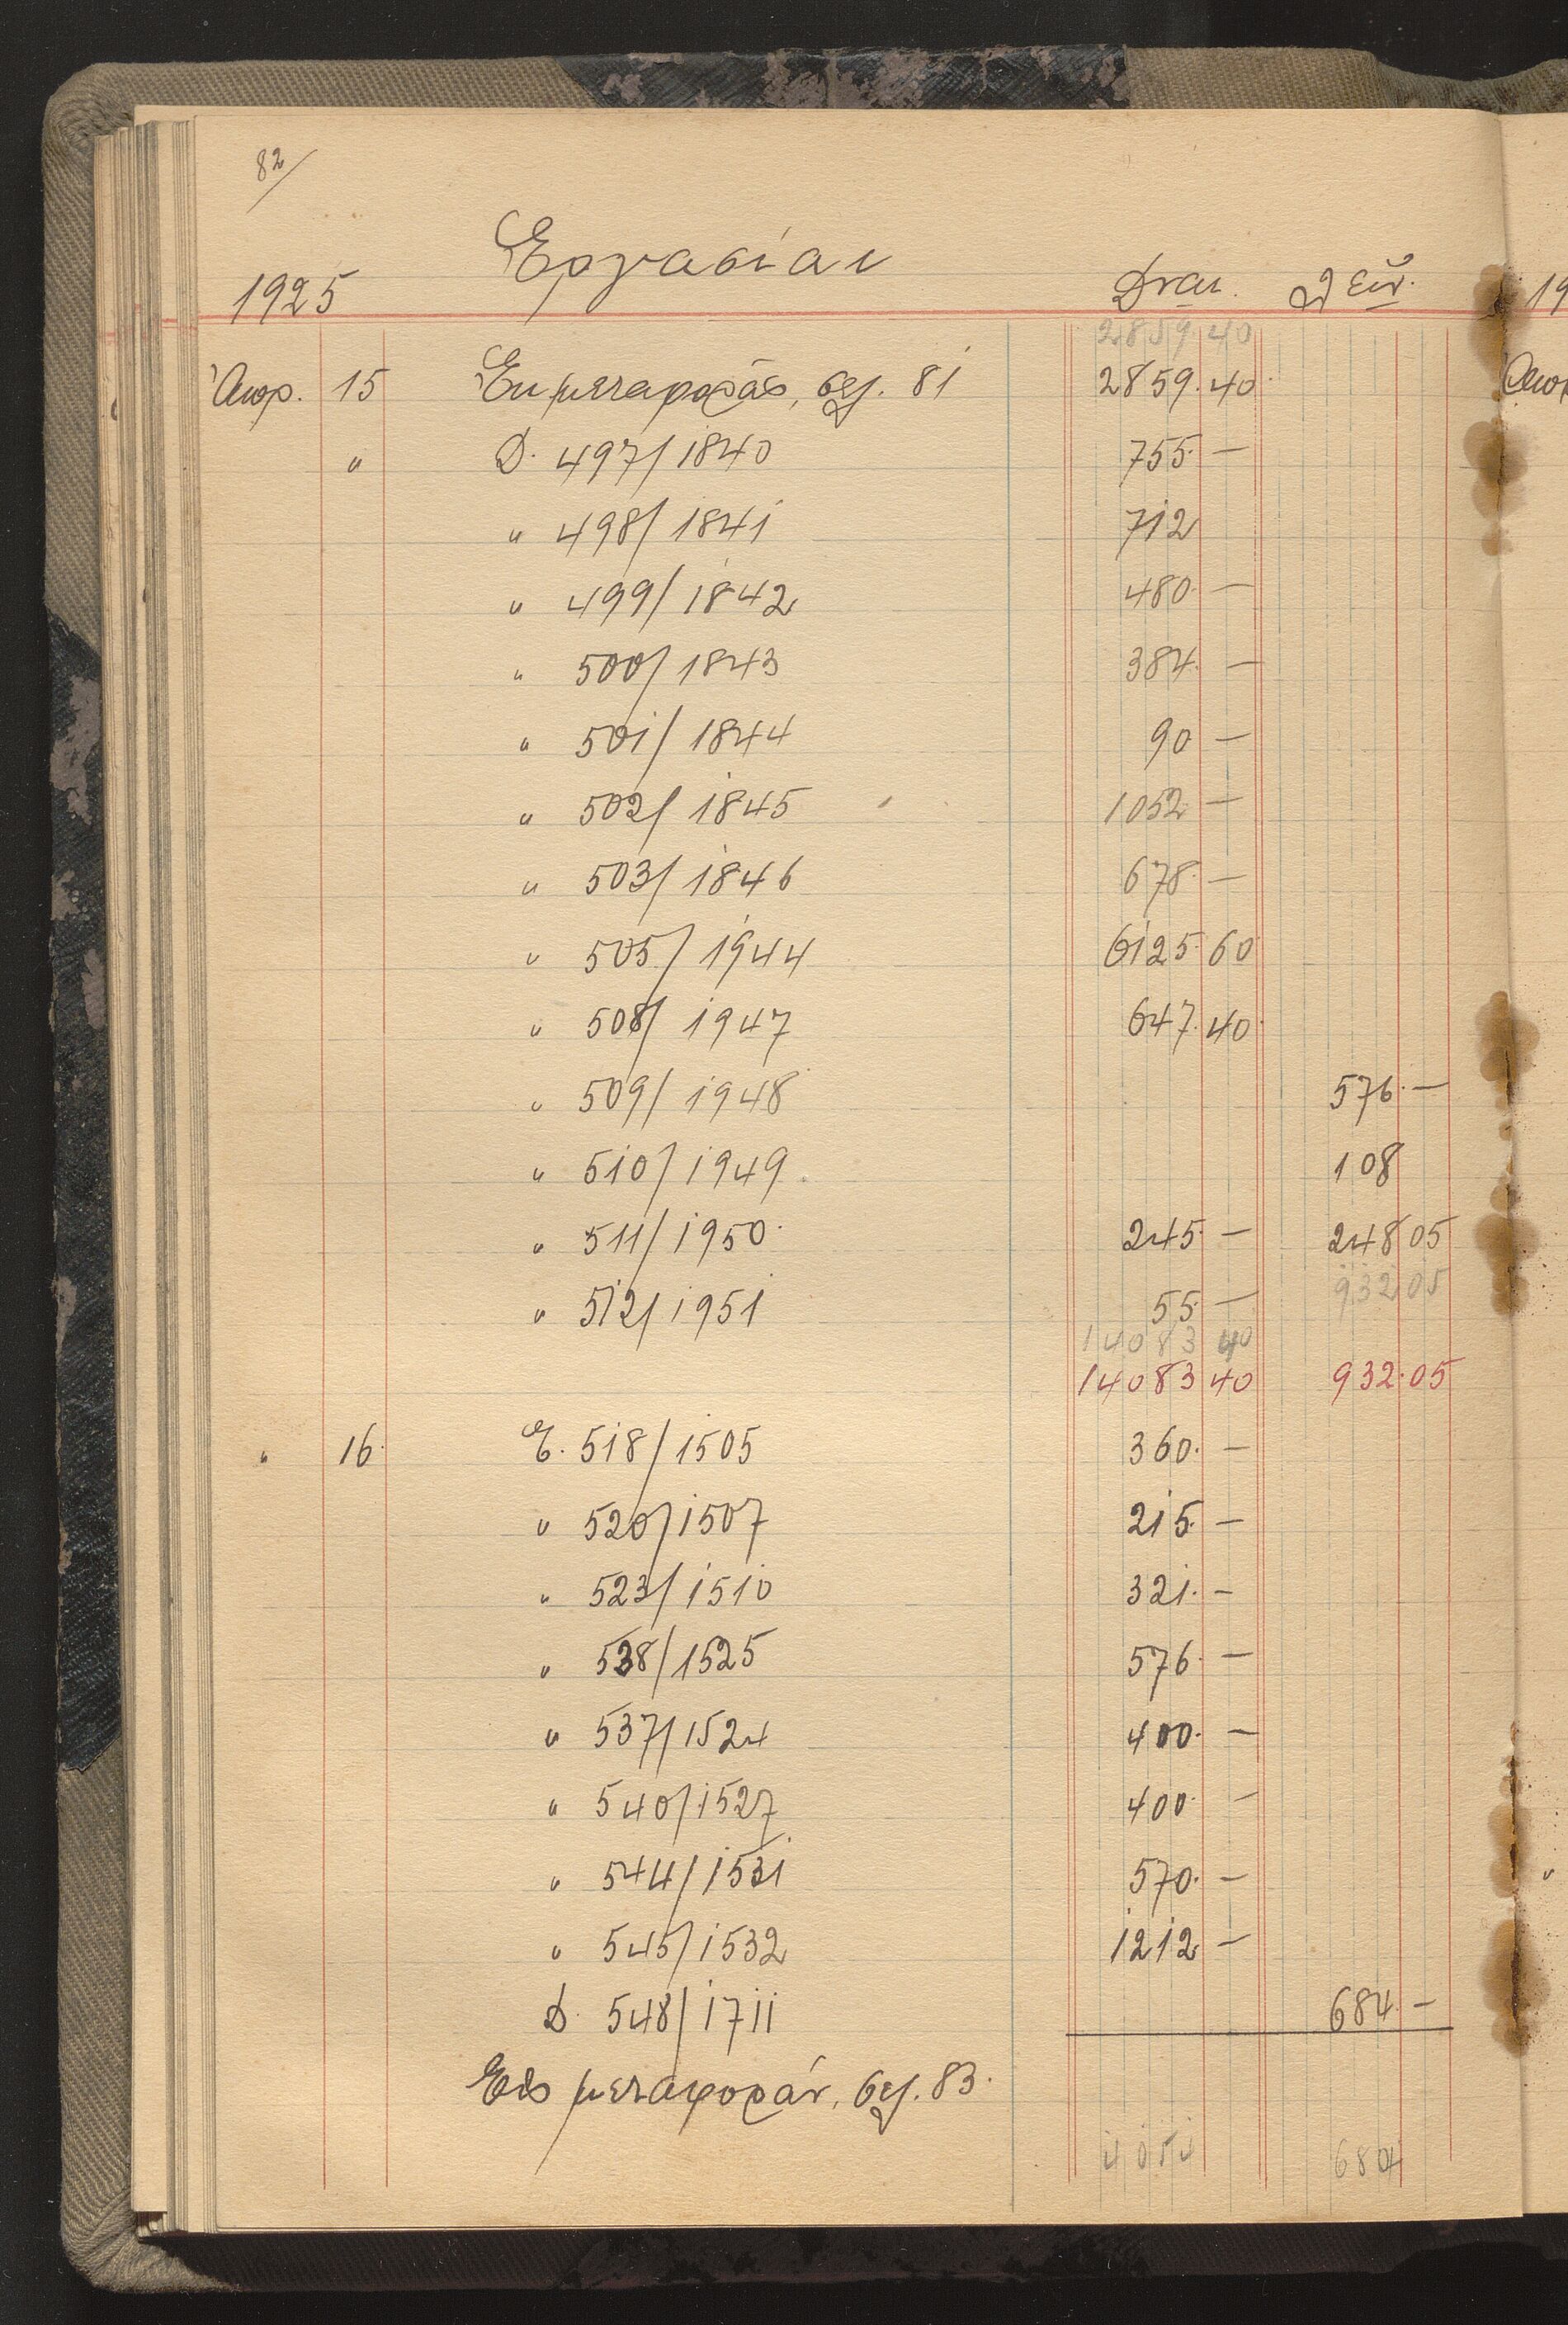 82/
Εργασίαι
1925 Δναι. Λειν.
2859 40
Απρ. 15 Εκ μεταφοράς, σελ. 81 2859.40
" D. 497/1840 755.—
" 498/1841 712
" 499/1842 480.—
" 500/1843 384.—
" 501/1844 90 —
" 502/1845 1052 —
" 503/1846 678.—
" 505/1944 6125 60
" 508/1947 647.40
" 509/1948 576.—
" 510/1949 108
" 511/1950 245.— 248 05
932 05
" 512/1951 55.—
14083 40
14083 40 932.05
" 16 Ε. 518/1505 360.—
" 520/1507 215.—
" 523/1510 321.—
" 538/1525 576.—
" 537/1524 400.—
" 540/1527 400.—
" 544/1531 570.—
" 545/1532 1212 —
D. 548/1711 684.—
Εις μεταφοράν, σελ. 83.
4054 684
19
Απρ
"